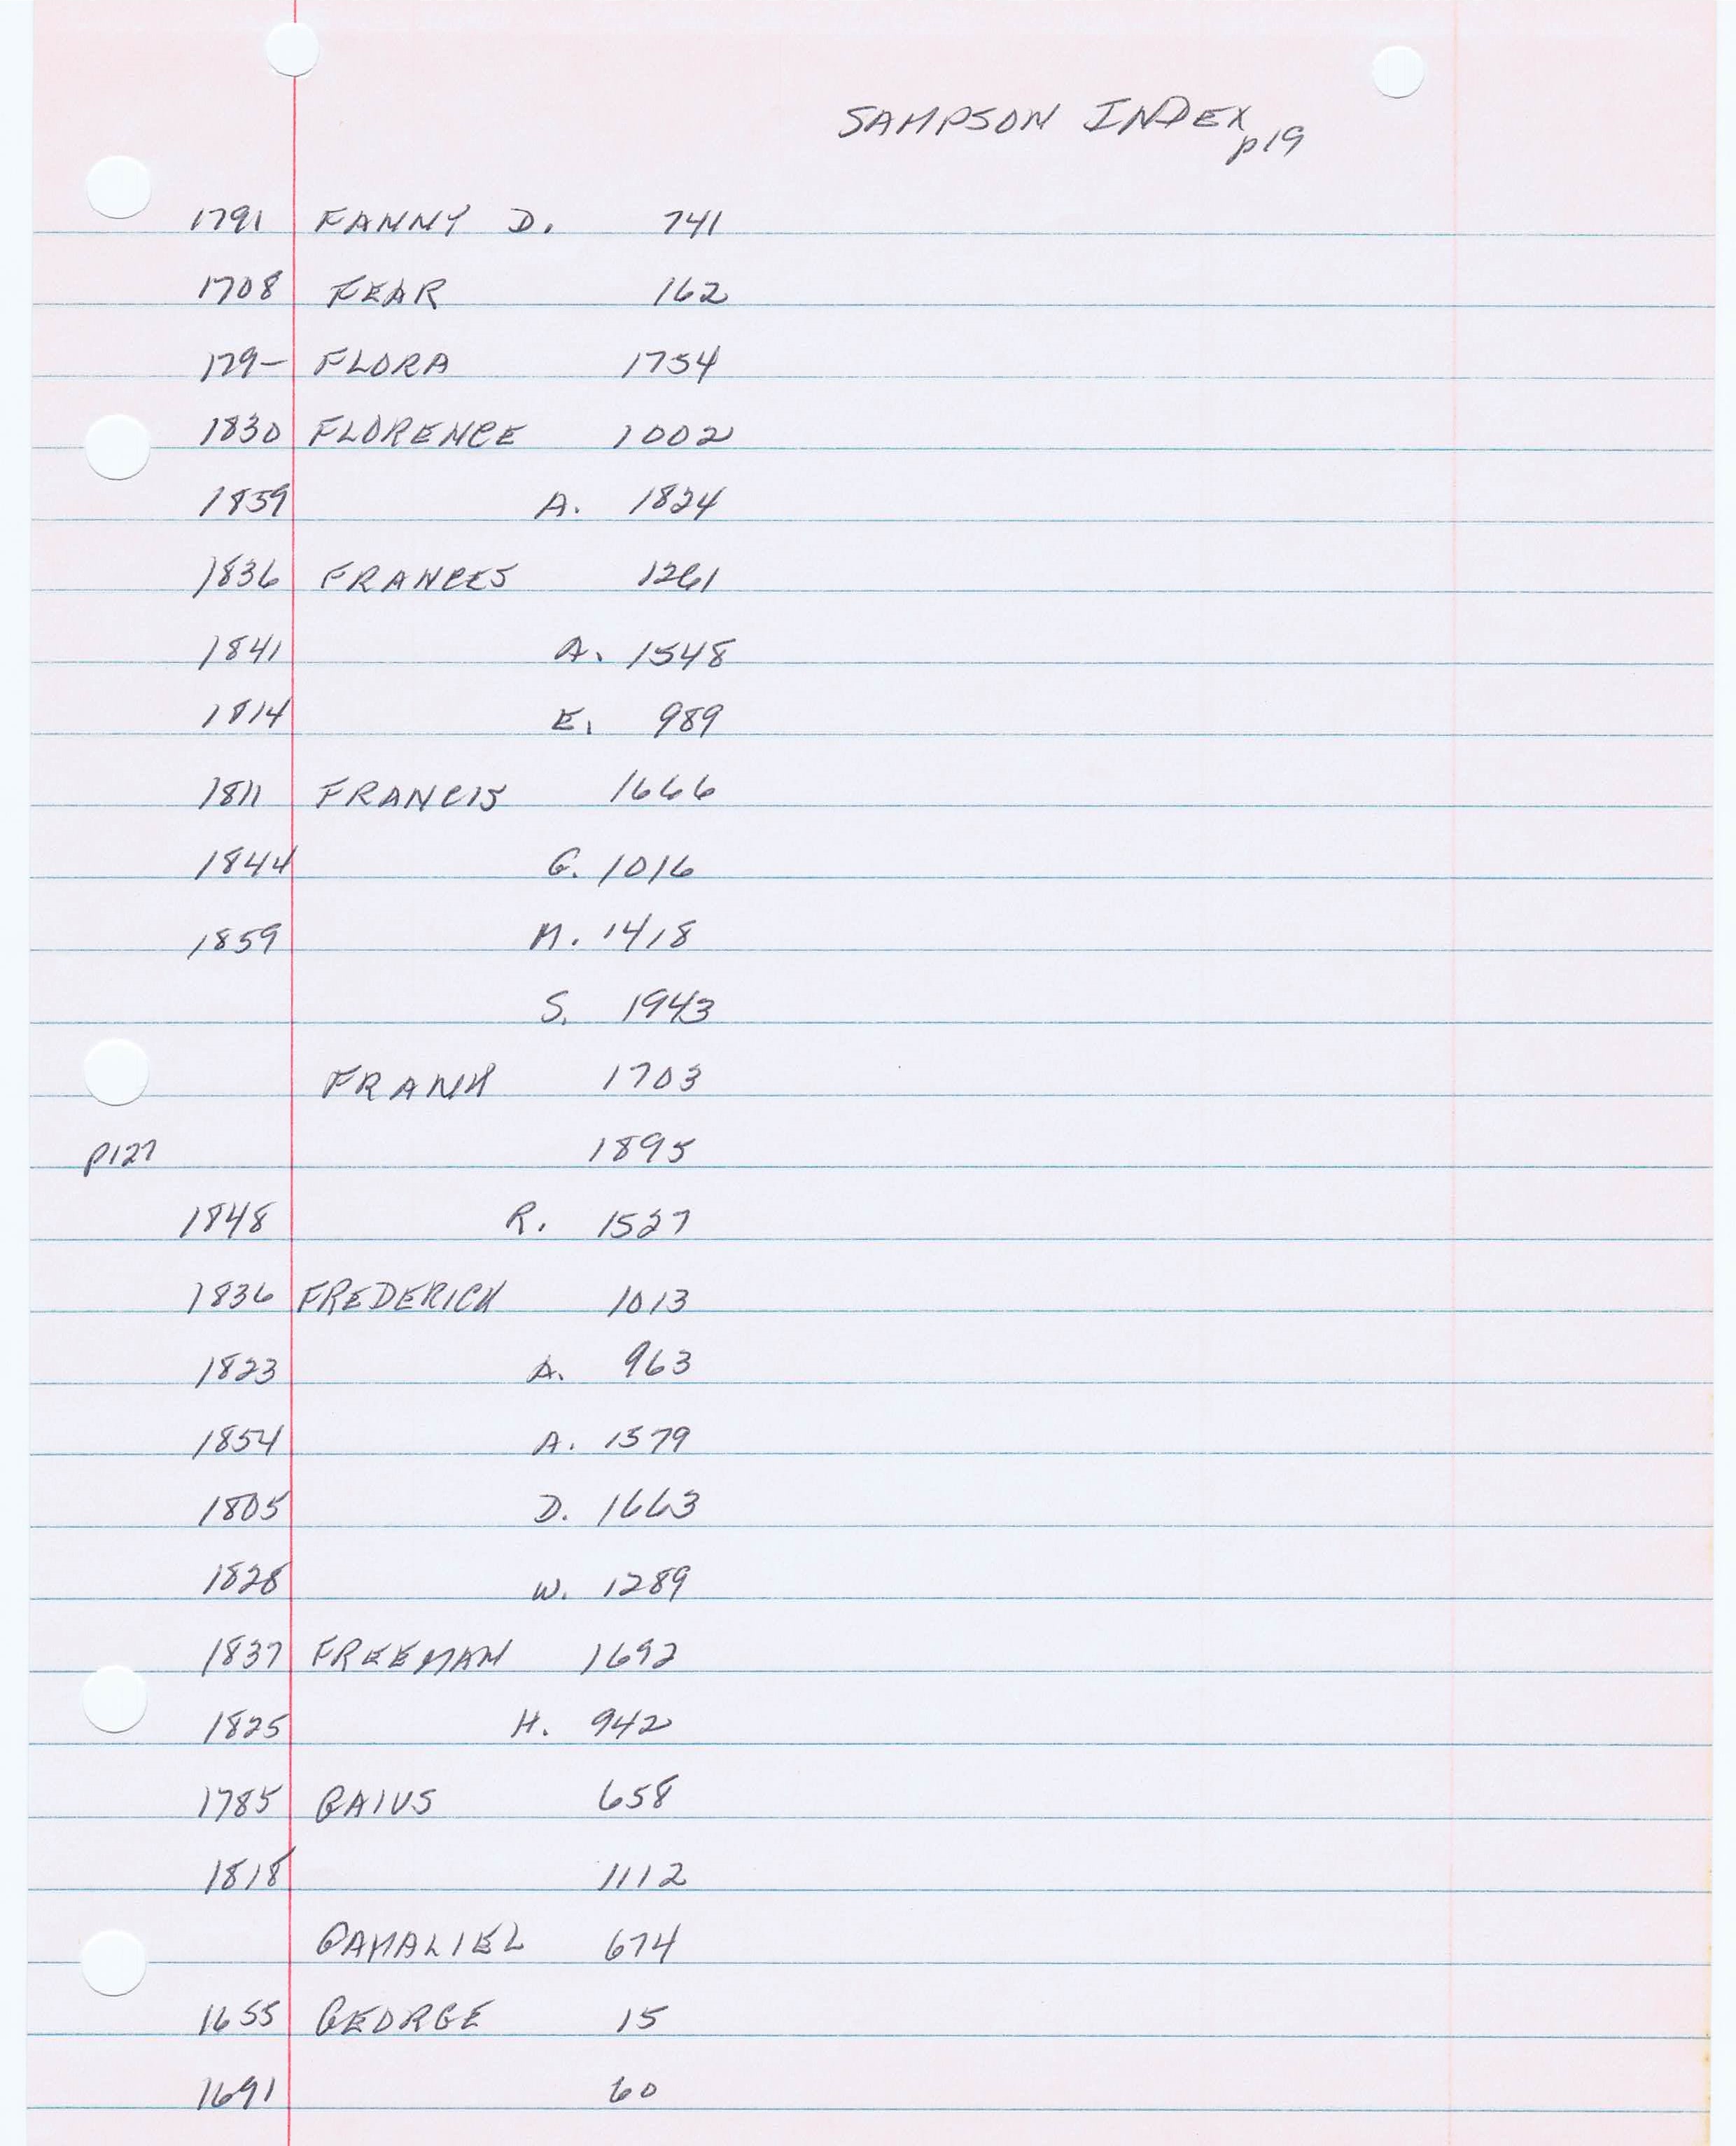 SAMPSON INDEX
p19
1791 FANNY D. 741
1708 FEAR 162
179- FLORA 1754
1830 FLORENCE 1002
1859 A. 1824
1836 FRANCES 1261
1841 A. 1548
1814 E. 989
1811 FRANCIS 1666
1844 G. 1016
1859 M. 1418
S. 1943
FRANK 1703
p127 1895
1848 R. 1527
1836 FREDERICK 1013
1823 A. 963
1854 A. 1579
1805 D. 1663
1828 W. 1289
1837 FREEMAN 1692
1825 H. 942
1785 GAIUS 658
1818 1112
GAMALIEL 674
1655 GEORGE 15
1691 60